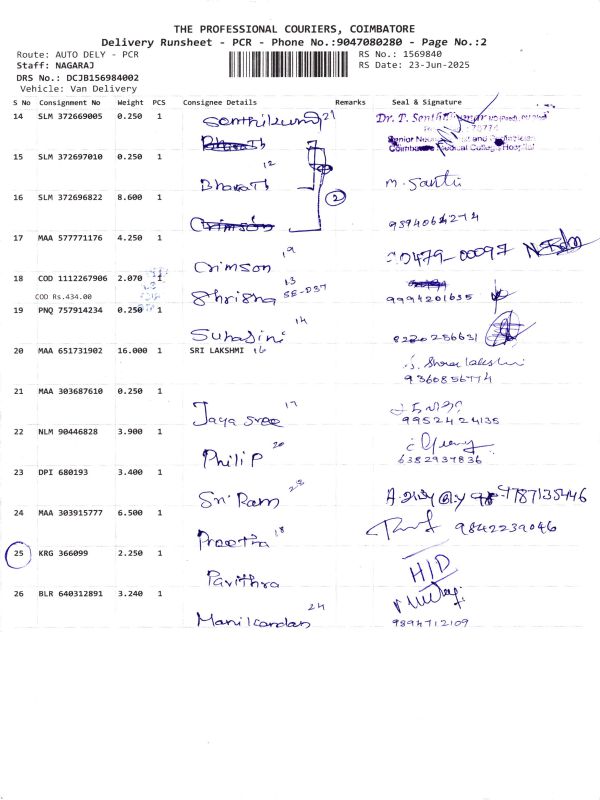 THE PROFESSIONAL COURIERS, COIMBATORE
Delivery Runsheet - PCR - Phone No.:9047080280 - Page No.:2
Route: AUTO DELY - PCR
RS No.: 1569840
Staff: NAGARAJ
RS Date: 23-Jun-2025
DRS No.: DCJB156984002
Vehicle: Van Delivery
S No Consignment No Weight PCS Consignee Details Remarks Seal & Signature
14 SLM 372669005 0.250 1 21
Bharath
15 SLM 372697010 0.250 1 12
Bharath M. Santi
16 SLM 372696822 8.600 1 2
Crimson
17 MAA 577771176 4.250 1 19
Crimson
18 COD 1112267906 2.070 1 13
COD Rs.434.00 SE-D37 9994201635
19 PNQ 757914234 0.250 1 14
Suhasini 8220256631
20 MAA 651731902 16.000 1 SRI LAKSHMI 16
9360856774
21 MAA 303687610 0.250 1 17
Jaya Sree 9952424135
22 NLM 90446828 3.900 1 20
Philip 6382937836
23 DPI 680193 3.400 1
Sri Ram 9787135446
24 MAA 303915777 6.500 1 18
Preetha 9842239046
25 KRG 366099 2.250 1 H/D
Pavithra
26 BLR 640312891 3.240 1 24
Manikandan 9894712109